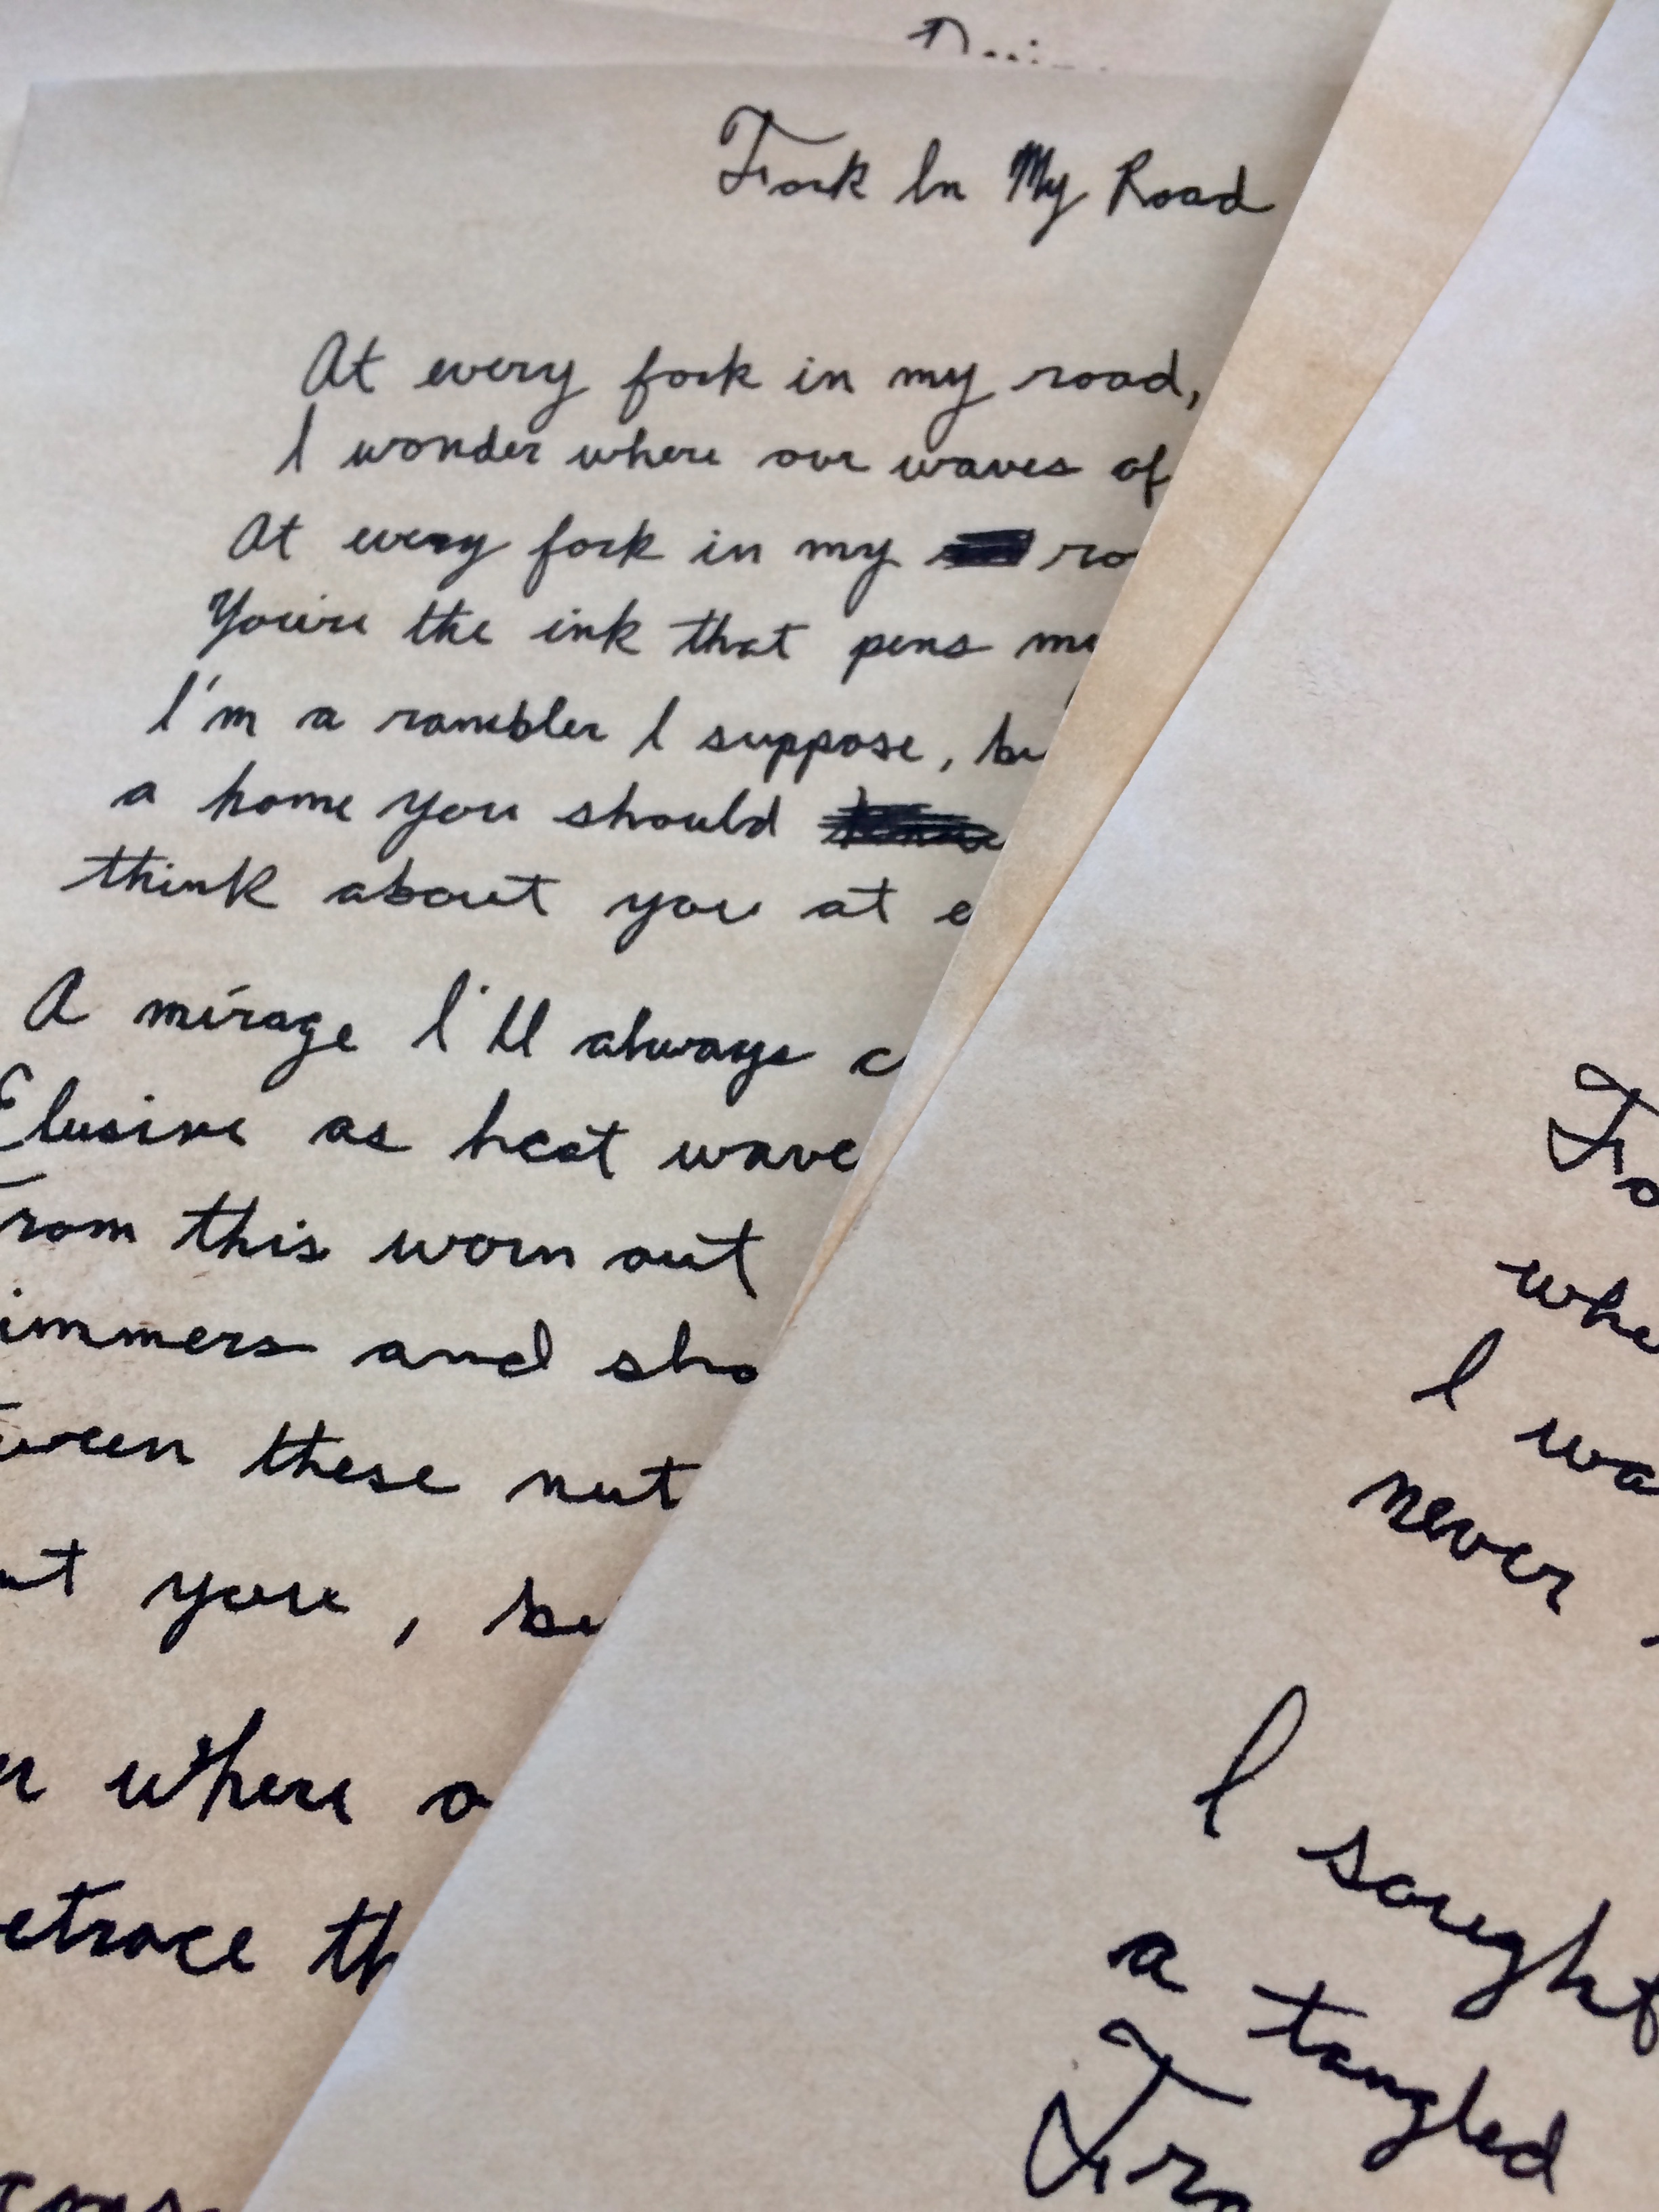 Fork In My Road
At every fork in my road,
I wonder where our waves of
At every fork in my ro
You're the ink that pens
I'm a rambler I suppose, bu
a home you should
think about you at e
A mirage I'll always c
Elusive as heat wave
rom this worn out
immers and sho
ween these nut
ut you, bu
er where o
etrace th
Fo
whe
I wa
never
I sought
a tangled
Fro